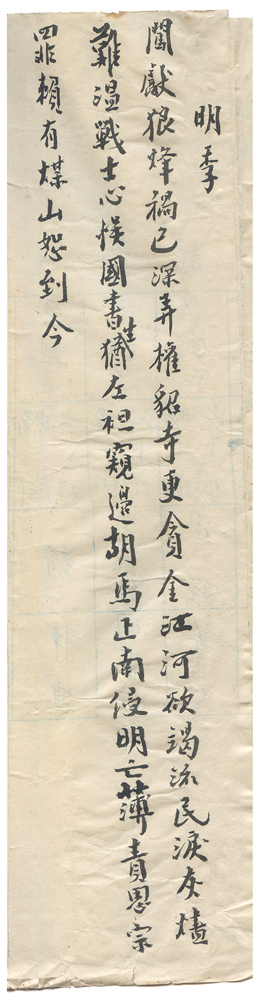 明季
闖獻狼烽禍已深弄權貂寺更貪金江河欲竭流民淚灰燼
難溫戰士心悞國書生猶左袒窺邊胡馬正南侵明亡薄責思宗
罪賴有煤山恕到今